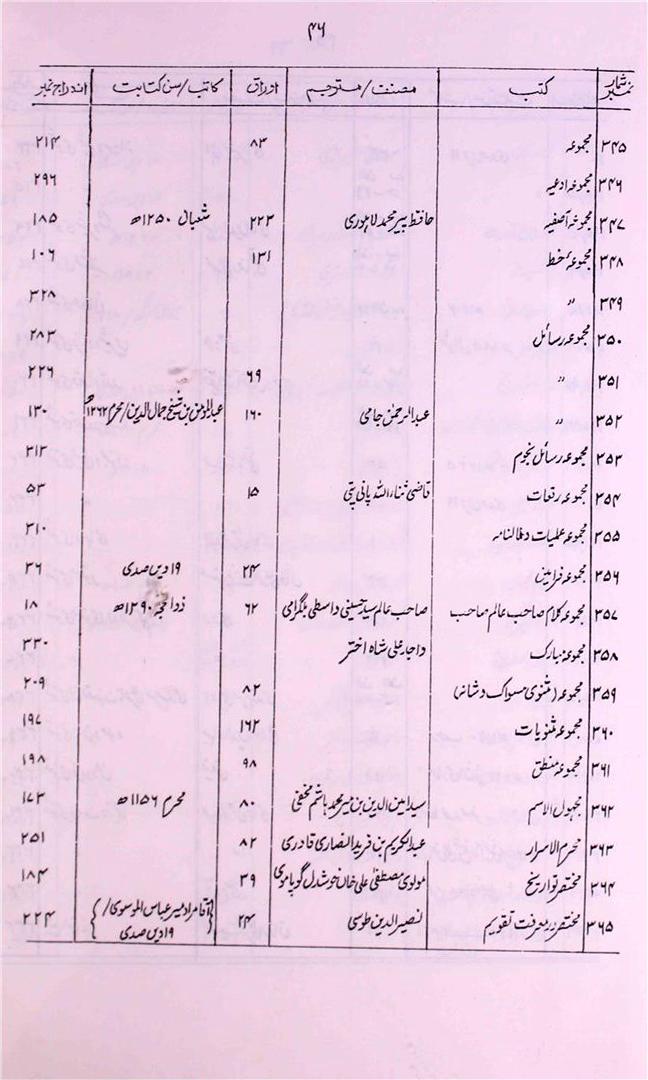 ۴۶
نمبر شمار | کتب | مصنف/مترجم | اوراق | کاتب/سن کتابت | اندراج نمبر
۳۴۵ مجموعہ ۸۳ ۲۱۴
۳۴۶ مجموعہ ادعیہ ۲۹۶
۳۴۷ مجموعہ آصفیہ حافظ پیر محمد لاہوری ۲۲۳ شعبان ۱۲۵۰ھ ۱۸۵
۳۴۸ مجموعۂ خط ۱۳۱ ۱۰۶
۳۴۹ " ۳۲۸
۳۵۰ مجموعہ رسائل ۲۸۳
۳۵۱ " ۶۹ ۲۲۶
۳۵۲ " عبدالرحمٰن جامی ۱۶۰ بن شیخ جمال الدین/محرم ۱۲۶۲ھ ۱۳۰
۳۵۳ مجموعہ رسائل نجوم ۳۱۳
۳۵۴ مجموعہ رقعات قاضی ثناء اللہ پانی پتی ۱۵ ۵۳
۳۵۵ مجموعہ عملیات و فالنامہ ۳۱۰
۳۵۶ مجموعہ فرامین ۲۴ ۱۹ویں صدی ۳۶
۳۵۷ مجموعہ کلام صاحب عالم صاحب صاحب عالم سید حسینی واسطی بلگرامی ۶۲ ۱۲۹۰ھ ۱۸
۳۵۸ مجموعۂ مبارک واجد علی شاہ اختر ۳۳۰
۳۵۹ مجموعہ (مثنوی مسواک و شانہ) ۸۲ ۲۰۹
۳۶۰ مجموعہ مثنویات ۱۶۲ ۱۹۷
۳۶۱ مجموعہ منطق ۹۸ ۱۹۸
۳۶۲ مجہول الاسم سید امین الدین بن میر محمد ہاشم مخفی ۸۰ محرم ۱۱۵۶ھ ۱۷۳
۳۶۳ محرم الاسرار عبدالکریم بن فرید انصاری قادری ۸۲ ۲۵۱
۳۶۴ مختصر تواریخ مولوی مصطفیٰ علی خاں خوشدل گوپاموی ۳۹ ۱۸۴
۳۶۵ مختصر در معرفت تقویم نصیر الدین طوسی ۲۴ {آقا مراد میر عباس الموسوی/ ۲۲۴
۱۹ویں صدی}